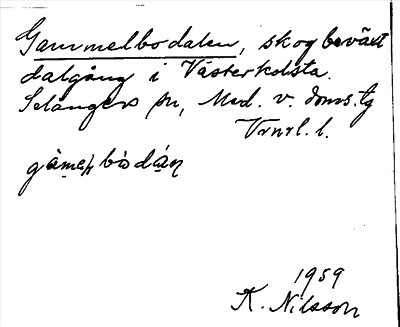 Gammelbodalen, skogbeväxt
dalgång i Västerkolsta.
Selångers sn, Med. v. doms.tg
Vrnrl. l.
gàmeḷbòdáṇ
1959
K. Nilsson